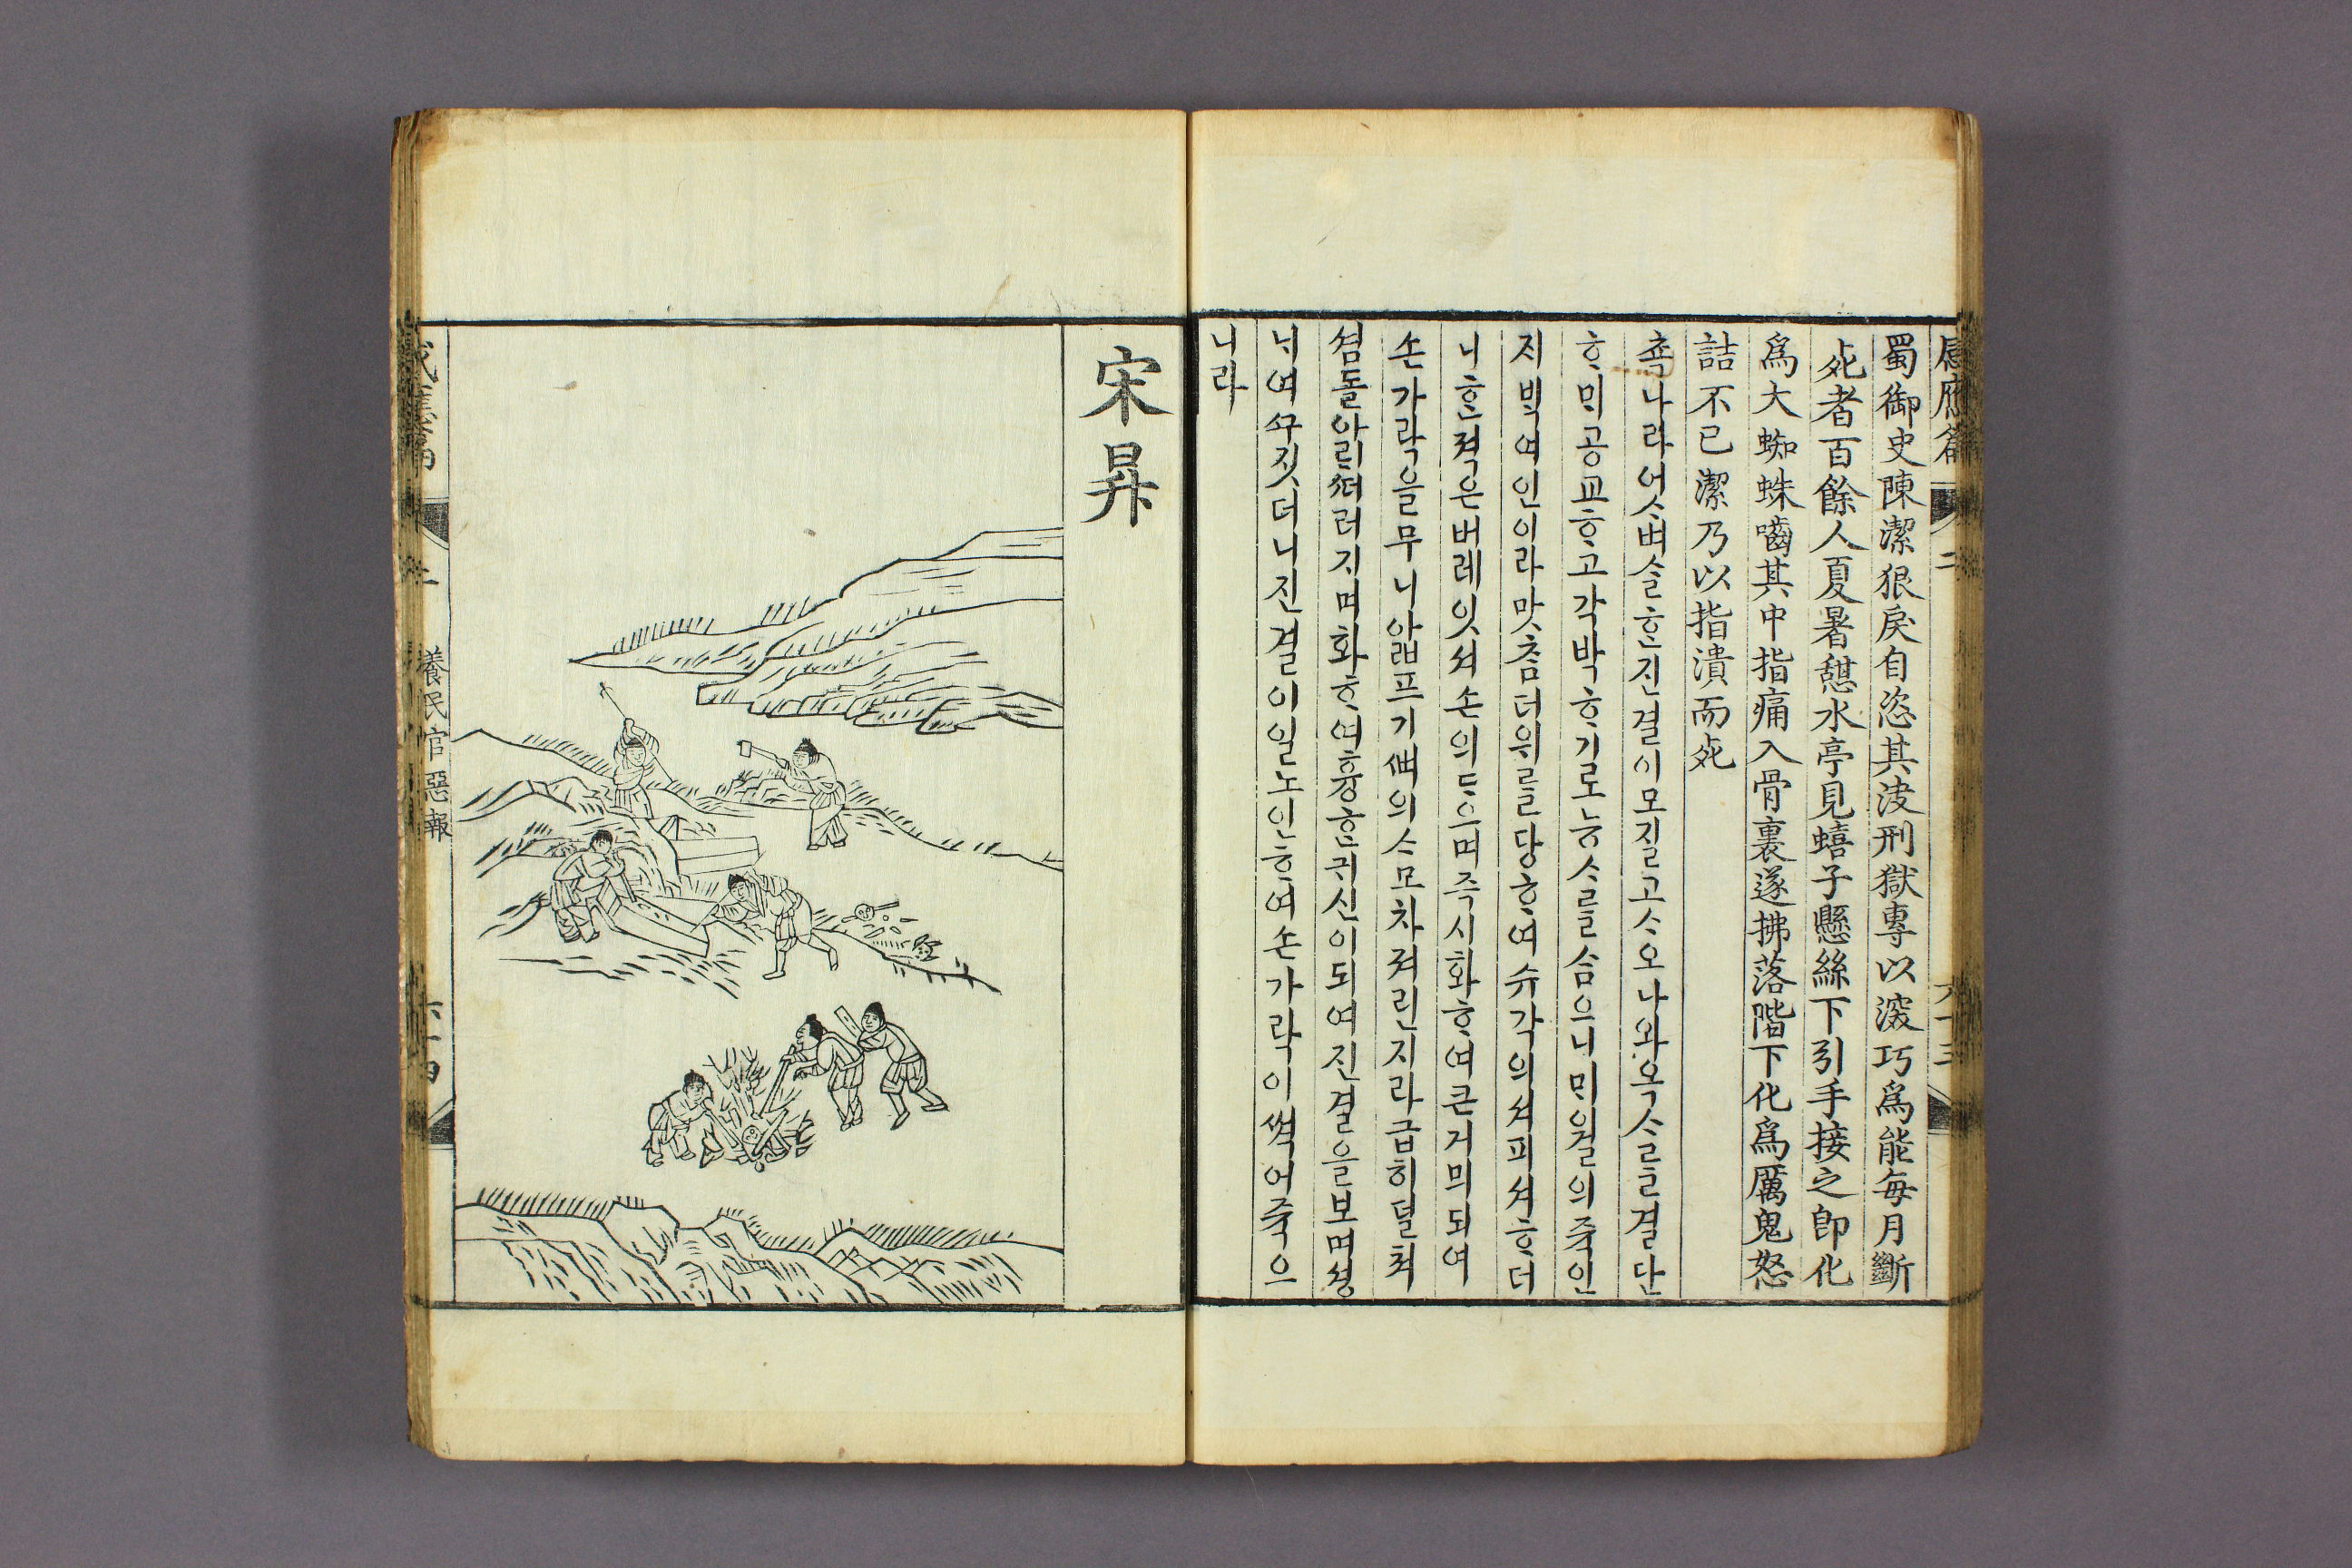 感應篇 二 六十三
蜀御史陳潔狠戾自恣其刑獄專以深巧爲能每月斷
死者百餘人夏暑憇水亭見蟢子懸絲下引手接之卽化
爲大蜘蛛嚙其中指痛入骨裏遂拂落階下化爲厲鬼怒
詰不已潔乃以指潰而死
쵹나라어ᄉᆞ벼슬ᄒᆞᆫ진결이모질고ᄉᆞ오나와옥ᄉᆞᄅᆞᆯ결단
ᄒᆞᄆᆡ공교ᄒᆞ고각박ᄒᆞ기로능ᄉᆞᄅᆞᆯ삼으니ᄆᆡ월의죽인
ᄌᆡᄇᆡᆨ여인이라맛ᄎᆞᆷ더위ᄅᆞᆯ당ᄒᆞ여슈각의셔피셔ᄒᆞ더
니ᄒᆞᆫ젹은버레잇셔손의드으며즉시화ᄒᆞ여큰거믜되여
손가락을무니압프기ᄲᅧ의ᄉᆞ모차져린지라급히덜쳐
셤돌아ᄅᆡᄯᅥ러지며화ᄒᆞ여흉ᄒᆞᆫ귀신이되여진결을보며셩
ᄂᆡ여ᄭᅮ짓더니진결이일노인ᄒᆞ여손가락이ᄡᅥᆨ어죽으
니라
宋昇
感應篇 二 養民官惡報 六十四